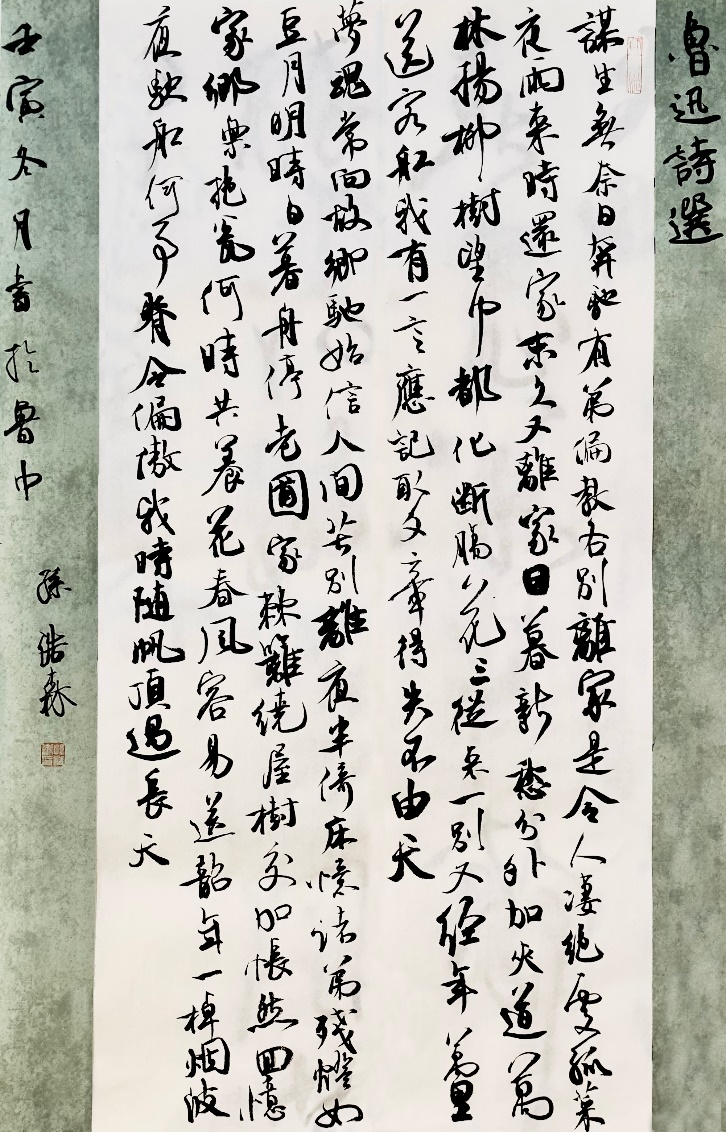 魯迅詩選
謀生無奈日奔馳有弟偏教各別離家是令人凄絕處孤
夜雨来時還家未久又離家日暮新愁分外加夾道萬
林楊柳樹望中都化斷腸花三從来一別又經年萬里
送客船我有一言應記取文章得失不由天
夢魂常向故鄉馳始信人间苦別離夜半倚床憶諸弟殘燈如
豆月明時日暮舟停老圃家棘籬繞屋樹交加悵然回憶
家鄉樂抱甕何時共養花春風容易送韶年一棹烟波
夜駛船何事脊令偏傲我時隨帆頂過長天
壬寅冬月書於魯中
孫浩森